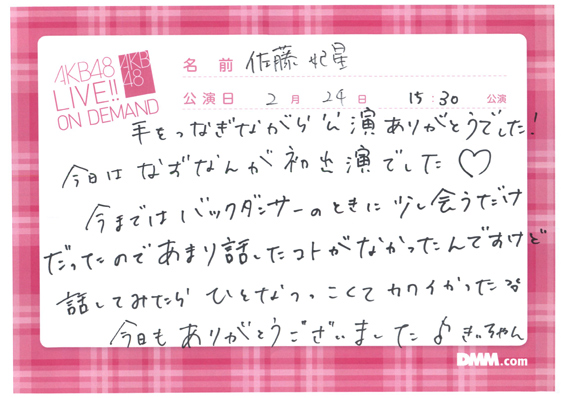 AKB48
LIVE!!
ON DEMAND
AKB
48
名前 佐藤妃星
公演日 2月24日 15:30 公演
手をつなぎながら公演ありがとうでした!
今日はなぎなんが初出演でした♡
今まではバックダンサーのときに少し会うだけ
だったのであまり話したコトがなかったんですけど
話してみたらひとなつっこくてカワイかった
今日もありがとうございました♪きぃちゃん
DMM.com